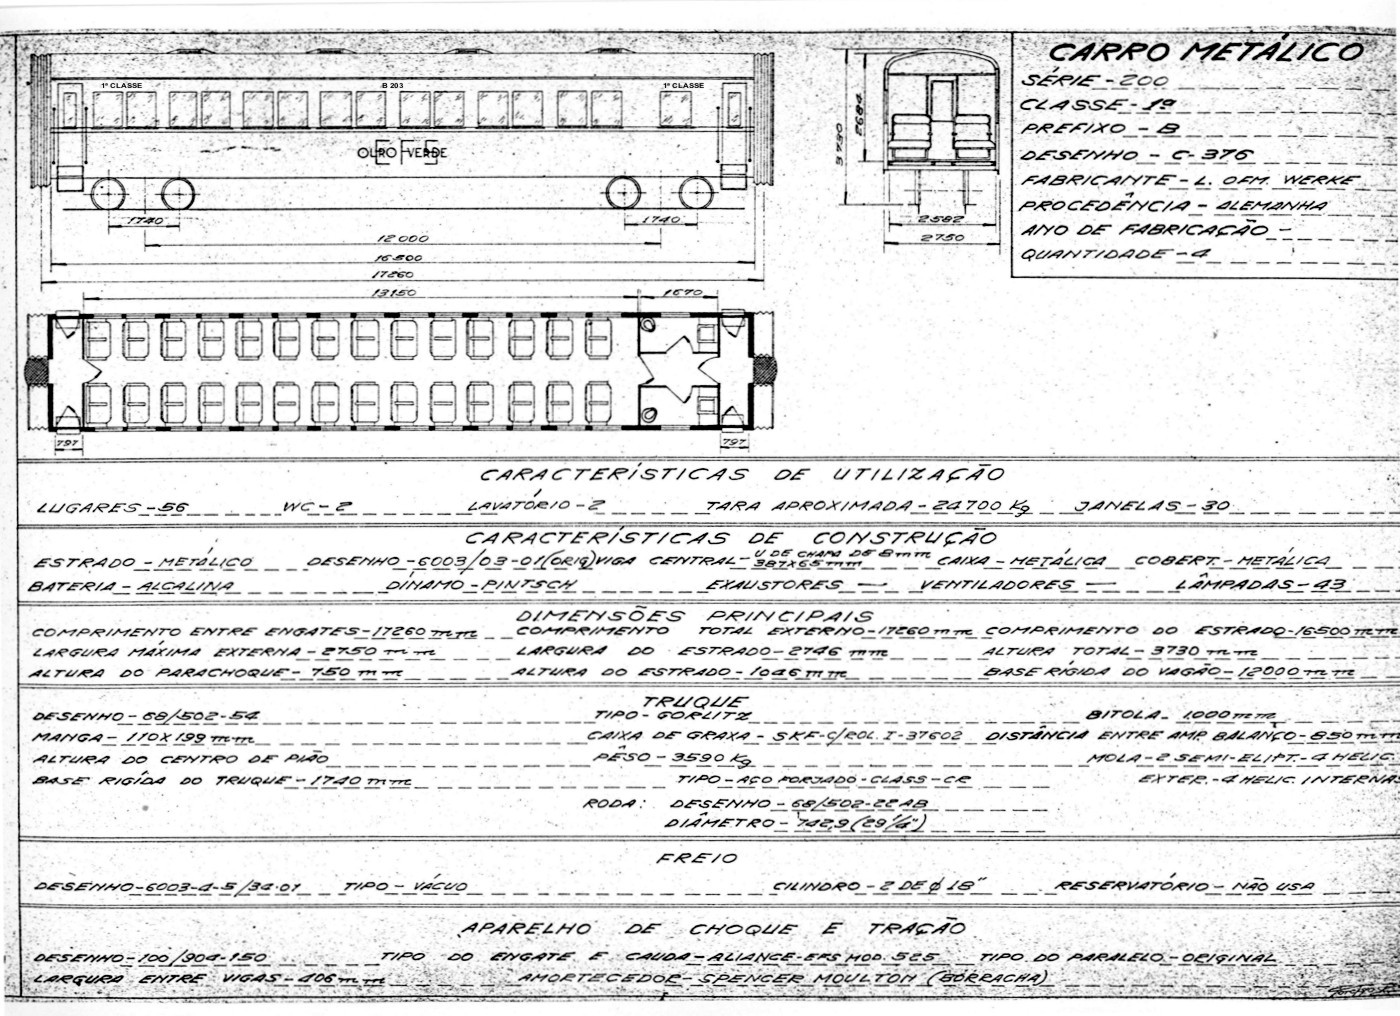 CARRO METÁLICO
SÉRIE - 200
CLASSE - 1ª
PREFIXO - B
DESENHO - C-376
FABRICANTE - L. OFM. WERKE
PROCEDÊNCIA - ALEMANHA
ANO DE FABRICAÇÃO -
QUANTIDADE - 4
1ª CLASSE
B 203
1ª CLASSE
OURO VERDE
EFE
1740
1740
12 000
16 500
17260
2684
3730
2582
2750
13150
1670
797
797
CARACTERÍSTICAS DE UTILIZAÇÃO
LUGARES - 56 WC - 2 LAVATÓRIO - 2 TARA APROXIMADA - 24700 Kg JANELAS - 30
CARACTERÍSTICAS DE CONSTRUÇÃO
ESTRADO - METÁLICO DESENHO - 6003/03-01 (ORIG) VIGA CENTRAL - U DE CHAPA DE 8 mm 387X65 mm CAIXA - METÁLICA COBERT. - METÁLICA
BATERIA - ALCALINA DÍNAMO - PINTSCH EXAUSTORES — VENTILADORES — LÂMPADAS - 43
DIMENSÕES PRINCIPAIS
COMPRIMENTO ENTRE ENGATES - 17260 mm COMPRIMENTO TOTAL EXTERNO - 17260 mm COMPRIMENTO DO ESTRADO - 16500 mm
LARGURA MÁXIMA EXTERNA - 2750 mm LARGURA DO ESTRADO - 2746 mm ALTURA TOTAL - 3730 mm
ALTURA DO PARACHOQUE - 750 mm ALTURA DO ESTRADO - 1046 mm BASE RÍGIDA DO VAGÃO - 12000 mm
TRUQUE
DESENHO - 68/502-54 TIPO - GORLITZ BITOLA - 1.000 mm
MANGA - 110X199 mm CAIXA DE GRAXA - SKF-C/ROL. I-37602 DISTÂNCIA ENTRE AMP. BALANÇO - 850 mm
ALTURA DO CENTRO DE PIÃO PÊSO - 3590 Kg MOLA - 2 SEMI-ELIPT. - 4 HELIC.
BASE RIGÍDA DO TRUQUE - 1740 mm TIPO - AÇO FORJADO - CLASS - CR EXTER. - 4 HELIC. INTERNAS
RODA: DESENHO - 68/502-22 AB
DIÂMETRO - 742,9 (29 1/4")
FREIO
DESENHO - 6003-4-5/34-01 TIPO - VÁCUO CILINDRO - 2 DE ø 18" RESERVATÓRIO - NÃO USA
APARELHO DE CHOQUE E TRAÇÃO
DESENHO - 100/904-150 TIPO DO ENGATE E CAUDA - ALIANCE-EFS MOD. 525 TIPO DO PARALELO - ORIGINAL
LARGURA ENTRE VIGAS - 406 mm AMORTECEDOR - SPENCER MOULTON (BORRACHA)